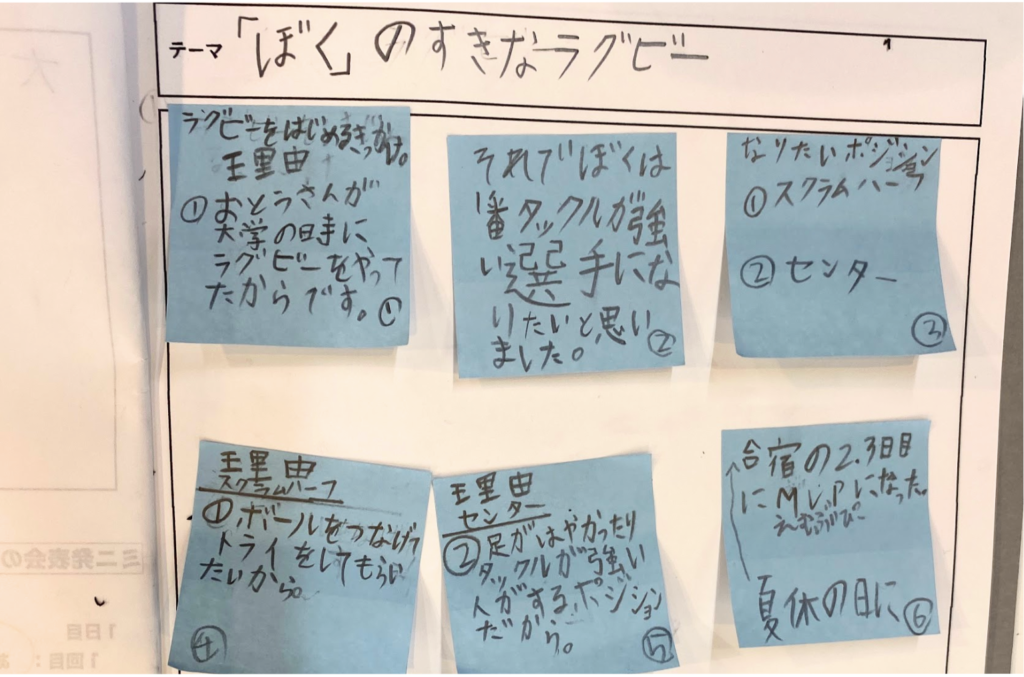 テーマ 「ぼく」のすきなラグビー
ラグビーをはじめるきっかけは。
王里由
①おとうさんが
大学の時に
ラグビーをやって
たからです。①
それでぼくは
1番タックルが強
い選手にな
りたいと思い
ました。②
なりたいポジション
①スクラムハーフ
②センター
③
王里由
スクラムハーフ
①ボールをつなげて
トライをしてもらい
たいから。
④
王里由
センター
②足がはやかったり
タックルが強い
人がするポジション
だから。
⑤
合宿の2.3日目
にM.V.Pになった。
えむぶいぴー
夏休の日に⑥
ミニ発表会の
1日目
1回目: